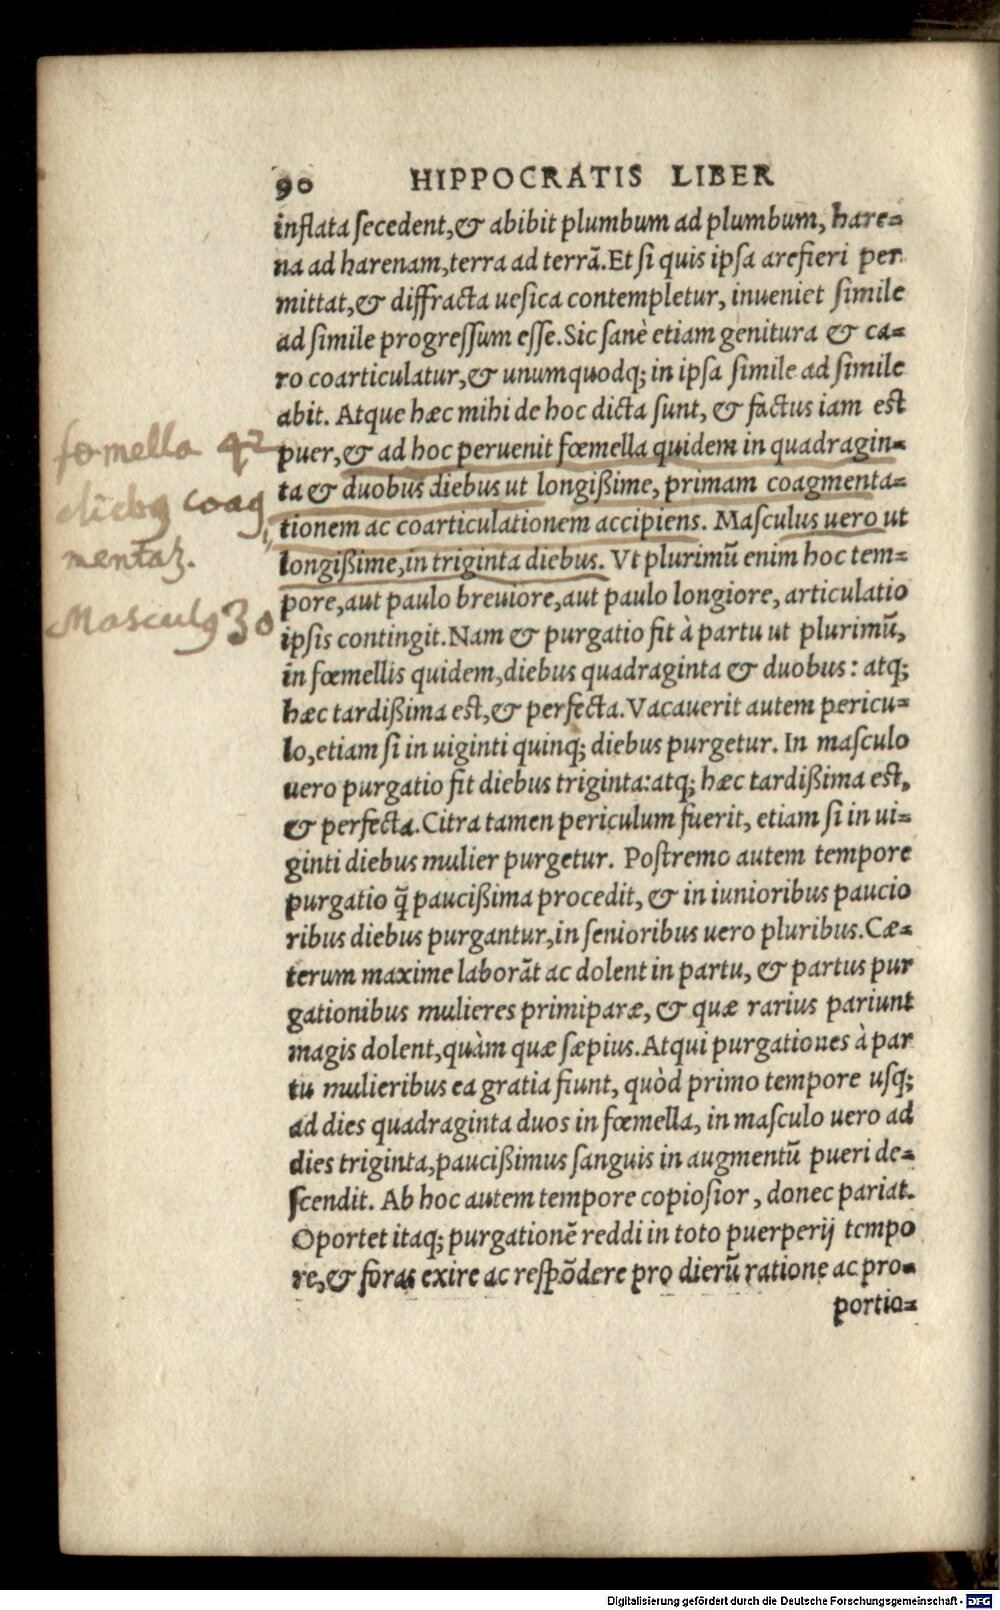 90 HIPPOCRATIS LIBER
inflata ſecedent,& abibit plumbum ad plumbum, hare-
na ad harenam,terra ad terrã.Et ſi quis ipſa arefieri per
mittat,& diffracta ueſica contempletur, inueniet ſimile
ad ſimile progreſſum eſſe.Sic ſanè etiam genitura & ca-
ro coarticulatur,& unumquodq; in ipſa ſimile ad ſimile
abit. Atque hæc mihi de hoc dicta ſunt, & factus iam est
puer,& ad hoc peruenit fœmella quidem in quadragin-
ta & duobus diebus ut longißime, primam coagmenta-
tionem ac coarticulationem accipiens. Maſculus uero ut
longißime,in triginta diebus. Vt plurimũ enim hoc tem-
pore,aut paulo breuiore,aut paulo longiore, articulatio
ipſis contingit.Nam & purgatio fit à partu ut plurimũ,
in fœmellis quidem,diebus quadraginta & duobus: atq;
hæc tardißima est,& perfecta.Vacauerit autem pericu-
lo,etiam ſi in uiginti quinq; diebus purgetur. In maſculo
uero purgatio fit diebus triginta:atq; hæc tardißima est,
& perfecta.Citra tamen periculum fuerit, etiam ſi in ui-
ginti diebus mulier purgetur. Poſtremo autem tempore
purgatio q̃ paucißima procedit, & in iunioribus paucio
ribus diebus purgantur,in ſenioribus uero pluribus.Cæ-
terum maxime laborãt ac dolent in partu, & partus pur
gationibus mulieres primiparæ, & quæ rarius pariunt
magis dolent,quàm quæ ſæpius.Atqui purgationes à par
tu mulieribus ea gratia fiunt, quòd primo tempore uſq;
ad dies quadraginta duos in fœmella, in maſculo uero ad
dies triginta,paucißimus ſanguis in augmentũ pueri de-
ſcendit. Ab hoc autem tempore copioſior, donec pariat.
Oportet itaq; purgationẽ reddi in toto puerperij tempo
re,& foras exire ac reſpõdere pro dierũ ratione ac pro-
portio-
fœmella 42
diebꝰ coag
mentaʒ.
Masculꝰ 30
Digitalisierung gefördert durch die Deutsche Forschungsgemeinschaft - DFG